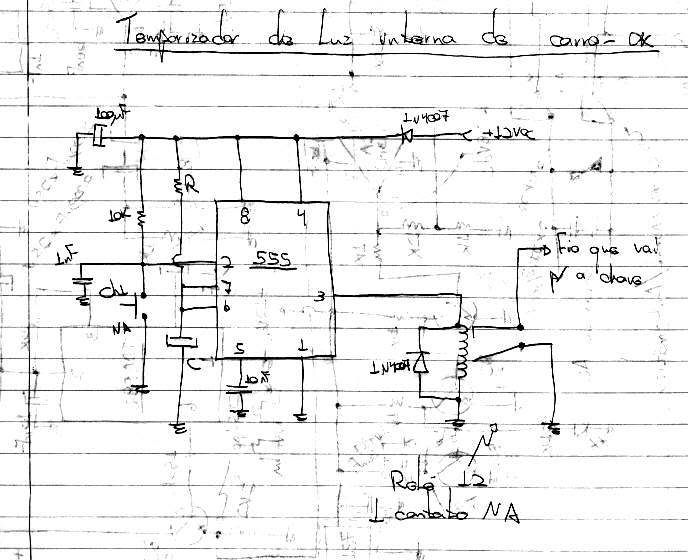 Temporizador de Luz interna de carro - OK
100µF
1N4007
+12Vcc
R
8
4
10K
Fio que vai
p/ a chave
1nF
2
555
7
Ch1
3
6
NA
C
5
1
1N4007
10nF
Relé 12
1 contato NA